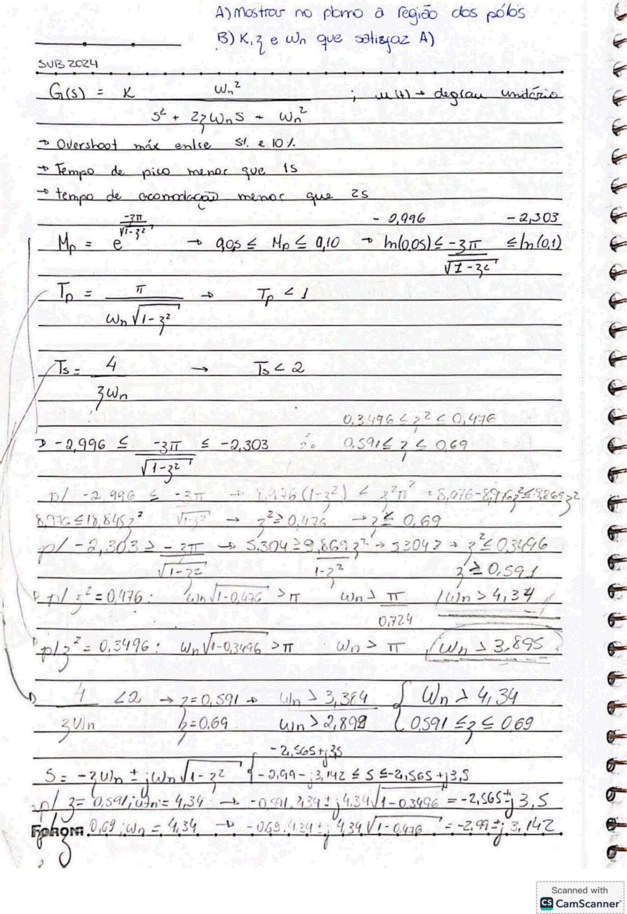 A) Mostrar no plano a região dos pólos
B) K, ξ e ωn que satisfaz A)
SUB 2024
G(s) = K ωn² / s² + 2ξωns + ωn² ; u(t) → degrau unitário
→ Overshoot máx entre 5% e 10%
→ Tempo de pico menor que 1s
→ tempo de acomodação menor que 2s
-0,996 -2,303
Mp = e^(-ξπ/√1-ξ²) → 0,05 ≤ Mp ≤ 0,10 → ln(0,05) ≤ -ξπ/√1-ξ² ≤ ln(0,1)
Tp = π / ωn√1-ξ² → Tp < 1
Ts = 4 / ξωn → Ts < 2
0,3496 < ξ² < 0,476
→ -2,996 ≤ -ξπ/√1-ξ² ≤ -2,303 ∴ 0,591 ≤ ξ ≤ 0,69
p/ -2,996 ≤ -ξπ/√1-ξ² → 8,976(1-ξ²) ≤ ξ²π² → 8,976-8,976ξ² ≤ 9,869ξ²
8,976 ≤ 18,845ξ² → ξ² ≥ 0,476 → ξ ≤ 0,69
p/ -2,303 ≥ -ξπ/√1-ξ² → 5,304 ≥ 9,869ξ²/1-ξ² → 5304 ≥ → ξ² ≤ 0,3496
ξ ≥ 0,591
p/ ξ² = 0,476: ωn√1-0,476 > π ωn > π/0,724 ωn > 4,34
p/ ξ² = 0,3496: ωn√1-0,3496 > π ωn > π ωn > 3,895
4/ξωn < 2 → ξ = 0,591 → ωn > 3,384 { ωn > 4,34
ξ = 0.69 ωn > 2,899 0,591 ≤ ξ ≤ 0,69
-2,565+j3,5
S = -ξωn ± jωn√1-ξ² { -2,99-j3,142 ≤ S ≤ -2,565+j3,5
p/ ξ = 0,591; ωn = 4,34 → -0,591.4,34 ± j4,34√1-0,3496 = -2,565 ± j3,5
p/ ξ 0,69; ωn = 4,34 → -0,69.4,34 ± j4,34√1-0,476 = -2,99 ± j3,142
Foroni
Scanned with
CS CamScanner